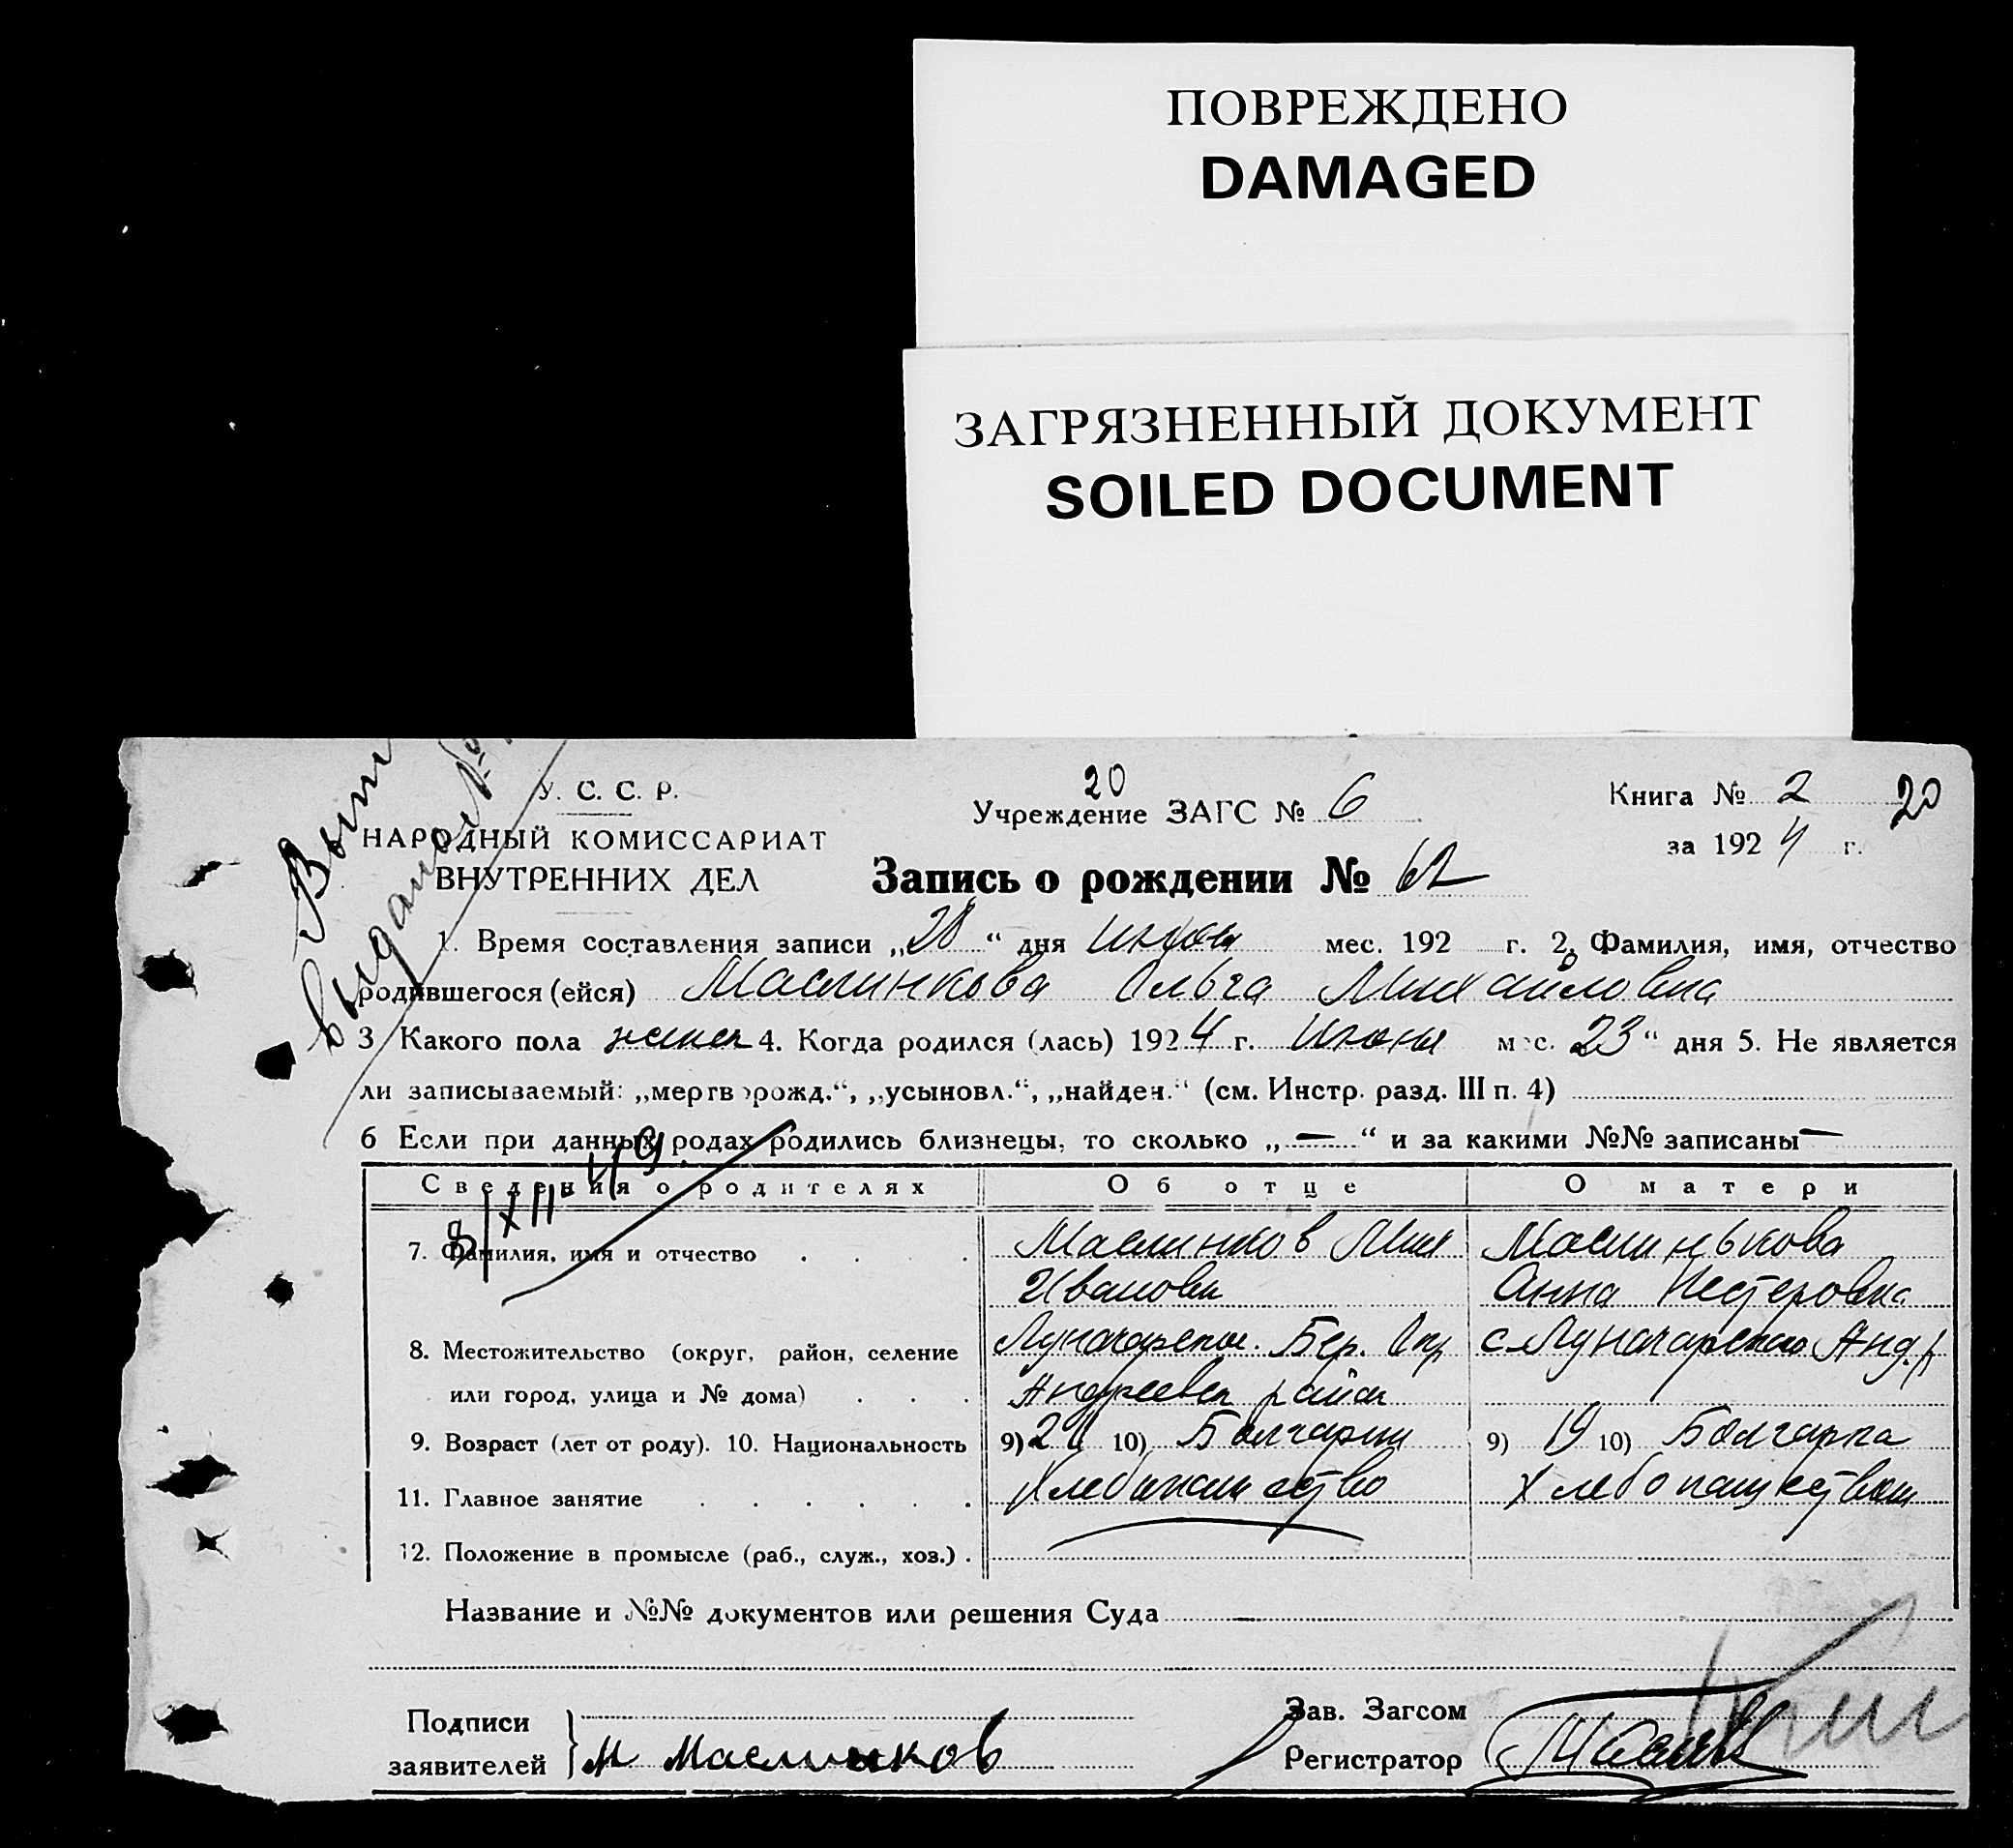 ПОВРЕЖДЕНО
DAMAGED
ЗАГРЯЗНЕННЫЙ ДОКУМЕНТ
SOILED DOCUMENT
Вып
выдано №
20
У. С. С. Р.
НАРОДНЫЙ КОМИССАРИАТ
ВНУТРЕННИХ ДЕЛ
Учреждение ЗАГС № 6
Книга № 2 20
за 1924 г.
Запись о рождении № 62
1. Время составления записи „28“ дня июня мес. 192 г. 2. Фамилия, имя, отчество
родившегося (ейся) Маслинкова Ольга Михайловна
3 Какого пола женск 4. Когда родился (лась) 1924 г. Июня мес. 23“ дня 5. Не является
ли записываемый: „мертворожд.“, „усыновл.“, „найден.“ (см. Инстр. разд. III п. 4)
6 Если при данных родах родились близнецы, то сколько „—“ и за какими №№ записаны —
8/XII 49
Сведения о родителях Об отце О матери
7. Фамилия, имя и отчество Маслинков Мих Маслинькова
Иванович Анна Нестеровна
8. Местожительство (округ, район, селение Луначарское. Бер. Окр с Луначарского Анд. р
или город, улица и № дома) Андреевск район
9. Возраст (лет от роду). 10. Национальность 9) 10) Болгарин 9) 19 10) Болгарка
11. Главное занятие Хлебопашество Хлебопашеством
12. Положение в промысле (раб., служ., хоз.)
Название и №№ документов или решения Суда —
Подписи
заявителей М Маслинков
Зав. Загсом
Регистратор